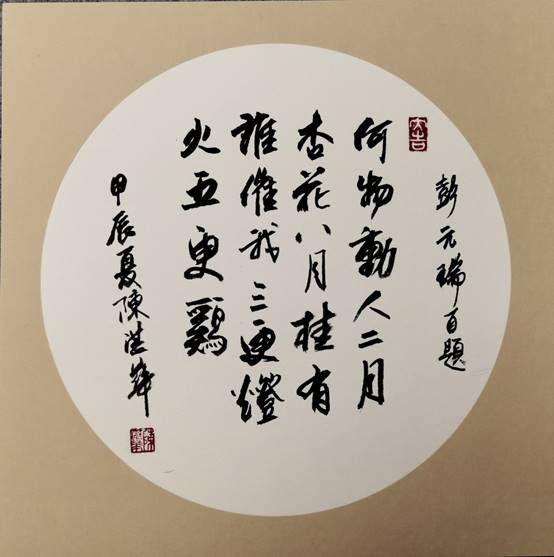 大吉
彭元瑞自題
何物動人二月
杏花八月桂有
誰催我三更燈
火五更鷄
甲辰夏陳華